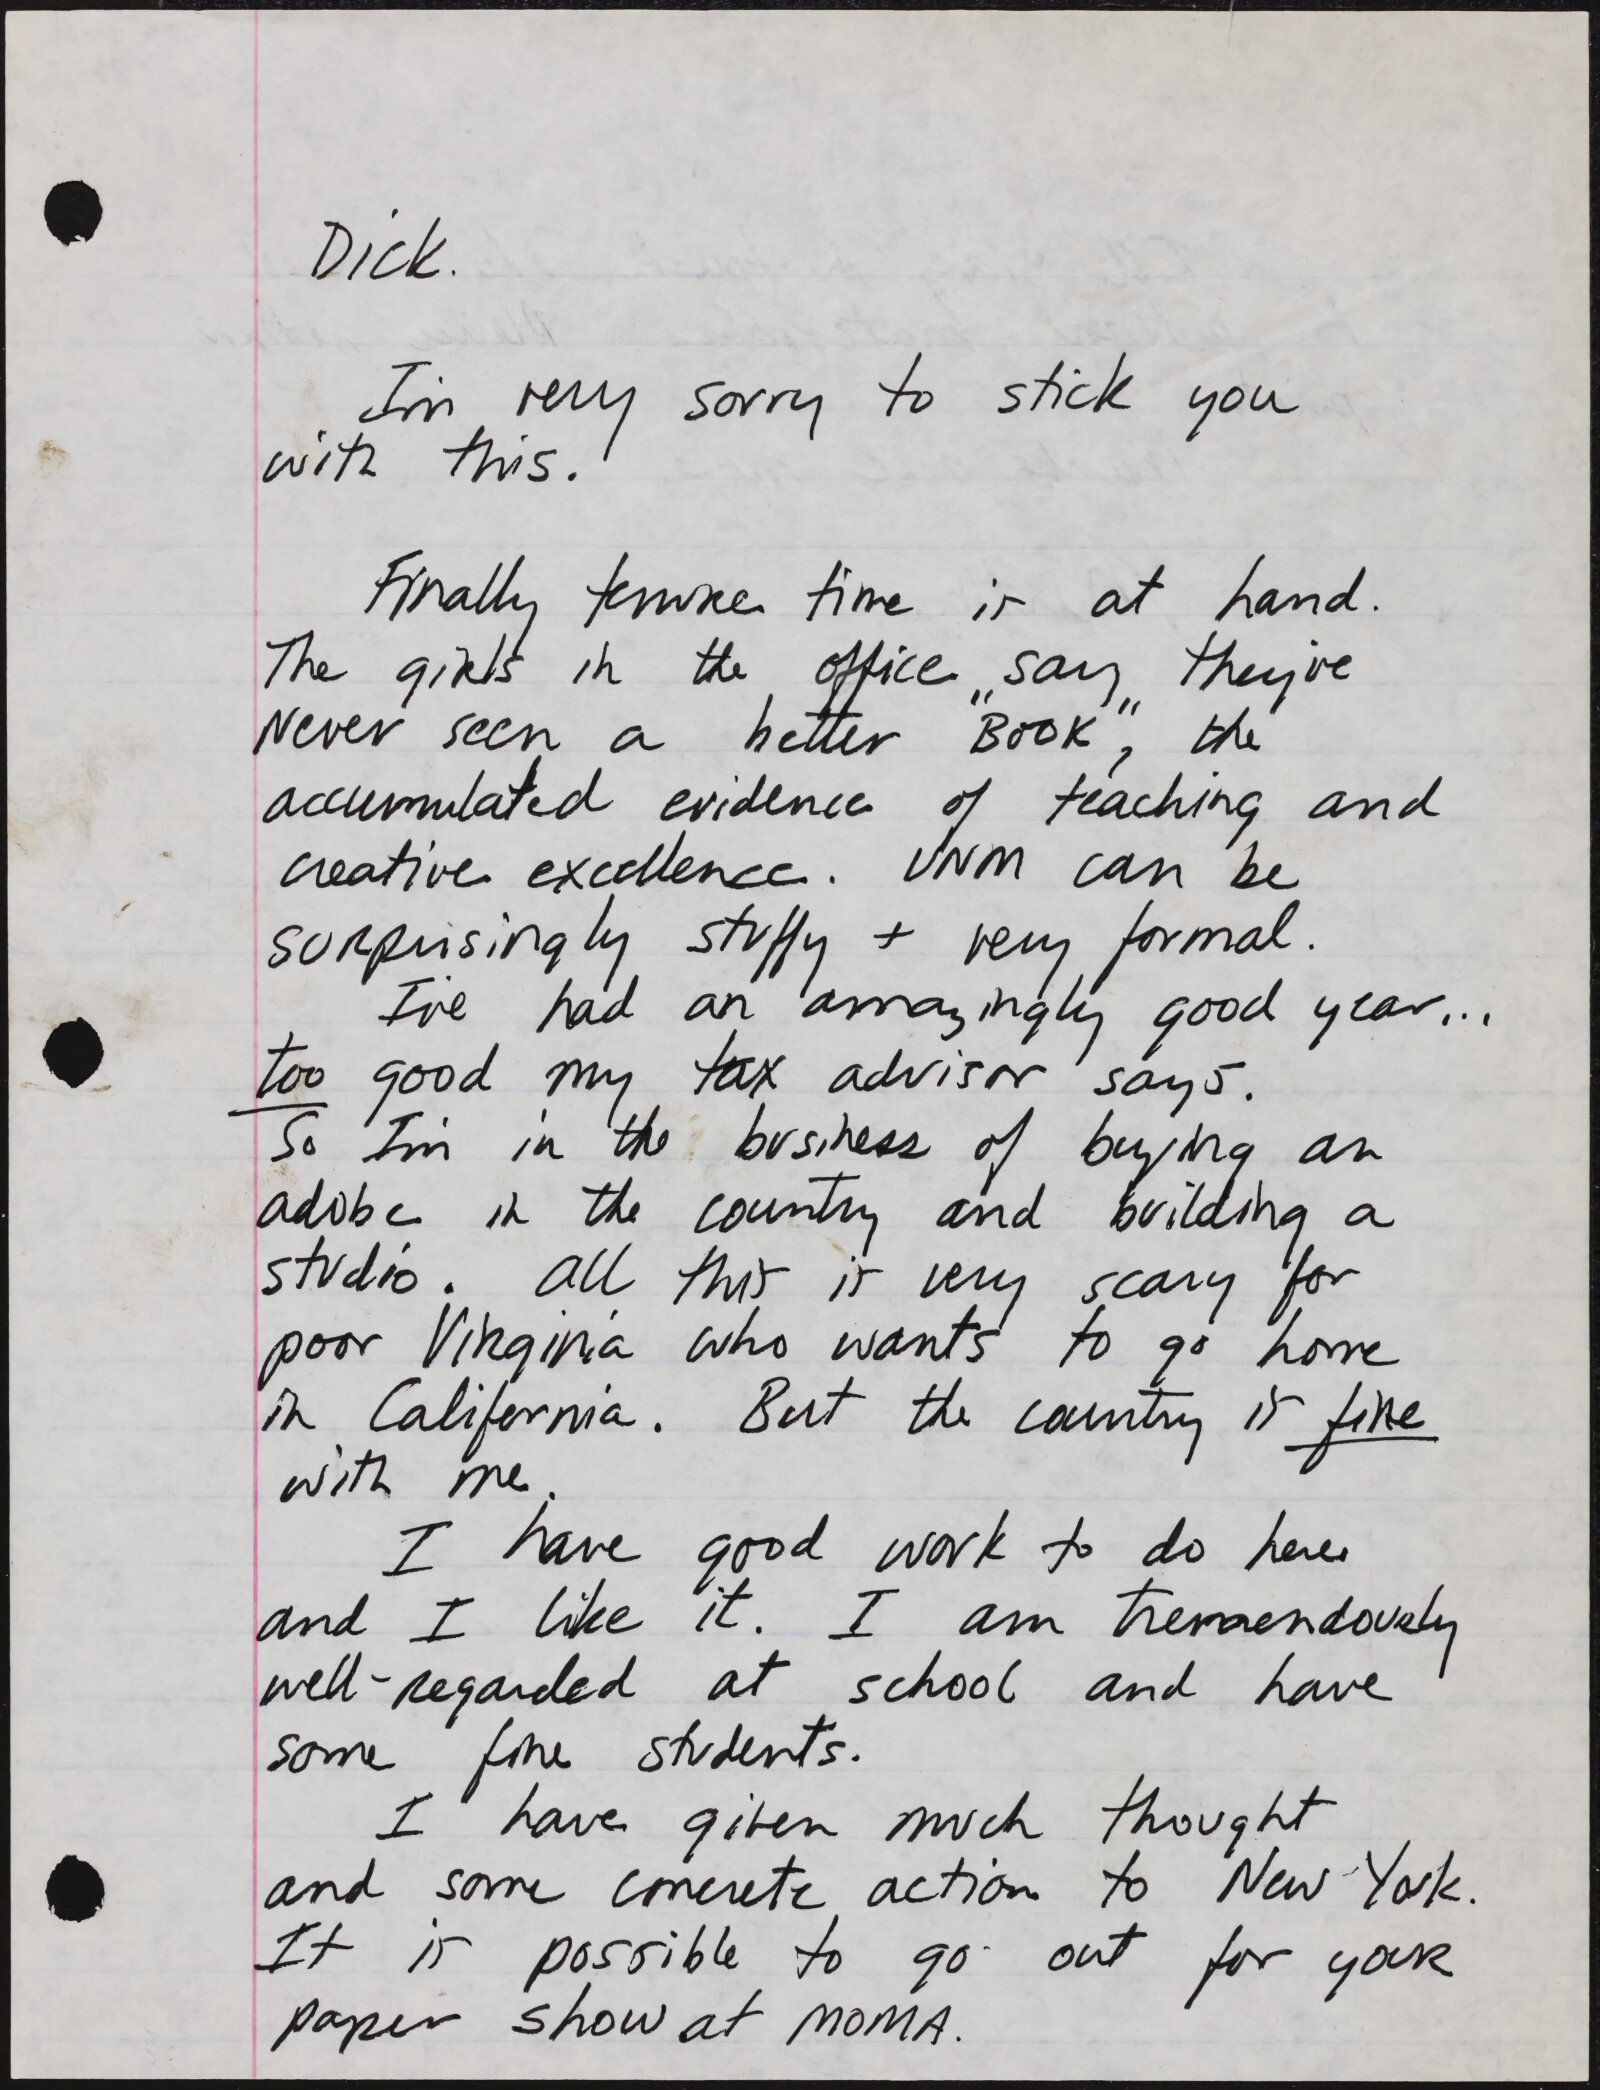 Dick.
I'm very sorry to stick you
with this.
Finally tenure time is at hand.
The girls in the office say they've
Never seen a better "BOOK", the
accumulated evidence of teaching and
creative excellence. UNM can be
surprisingly stuffy + very formal.
I've had an amazingly good year...
too good my tax advisor says.
So I'm in the business of buying an
adobe in the country and building a
studio. All this is very scary for
poor Virginia who wants to go home
in California. But the country is fine
with me.
I have good work to do here
and I like it. I am tremendously
well-regarded at school and have
some fine students.
I have given much thought
and some concrete action to New York.
It is possible to go out for your
paper show at MOMA.